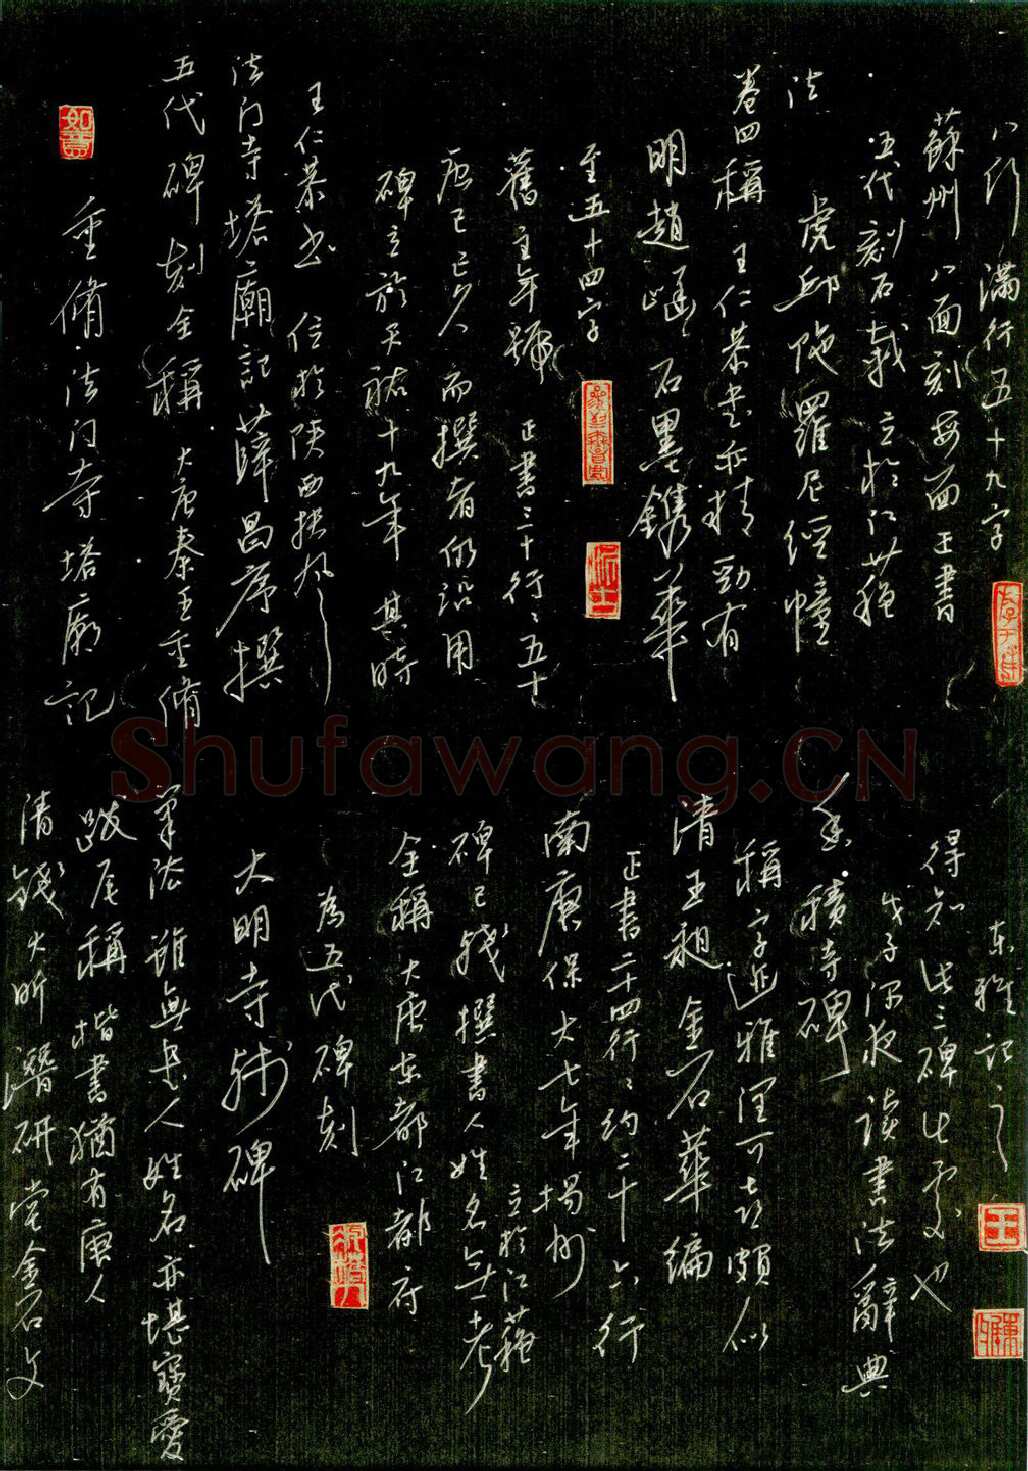 如意
重脩法门寺塔廟記
五代碑刻全稱大唐秦王重脩
法门寺塔廟記薛昌序撰
王仁恭书 位於陕西扶风
碑立於天祐十九年 其時
唐已亡久而撰者仍沿用
舊主年號 正書三十行行五十
至五十四字
明趙崡石墨鐫華
卷四稱 王仁恭書亦精勁有
法
虎邱陀羅尼經幢
五代刻石 立於江苏
蘇州 八面刻每面正書
八行 满行五十九字
清錢大昕潛研堂金石文
跋尾稱 楷書猶有唐人
筆法雖無書人姓名亦堪寶愛
大明寺残碑
為五代碑刻
全稱大唐东都江都府
碑已残撰書人姓名無考
立於江蘇
南唐保大七年 揚州
正書二十四行行約二十六行
清王昶金石萃編
稱字迹雅潤可喜頗似
香積寺碑
戊子深夜读書法辭典
得知此三碑出處也
东雅記之
王
Shufawang.CN